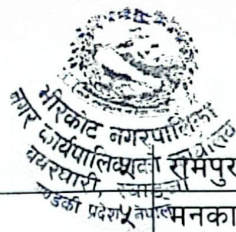 भीरकोट नगरपालिका
नगर कार्यपालिकाको
बयरघारी, स्याङ्जा
गण्डकी प्रदेश, नेपाल
रामपुर
५
मनका